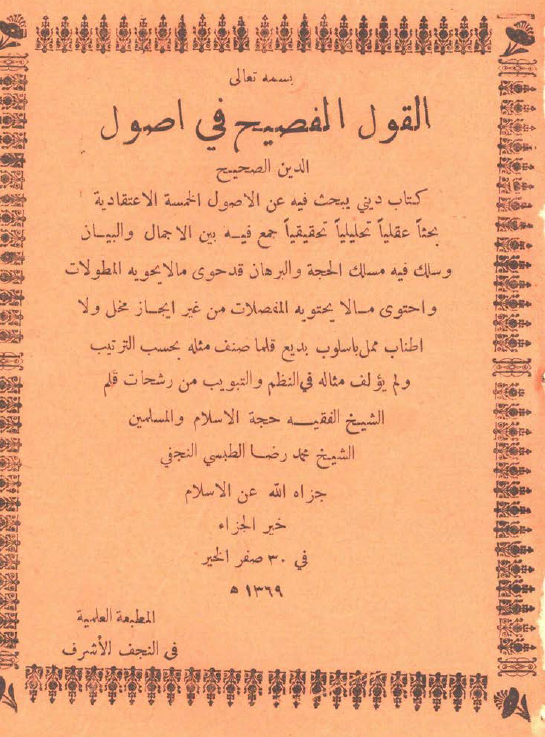 بسمه تعالى
القول الفصيح في اصول
الدين الصحيح
كتاب ديني يبحث فيه عن الاصول الخمسة الاعتقادية
بحثاً عقلياً تحليلياً تحقيقياً جمع فيه بين الاجمال والبيان
وسلك فيه مسلك الحجة والبرهان قد حوى مالا يحويه المطولات
واحتوى مالا يحتويه المفصلات من غير ايجاز مخل ولا
اطناب ممل باسلوب بديع قلما صنف مثله بحسب الترتيب
ولم يؤلف مثاله في النظم والتبويب من رشحات قلم
الشيخ الفقيه حجة الاسلام والمسلمين
الشيخ محمد رضا الطبسي النجفي
جزاه الله عن الاسلام
خير الجزاء
في ٣٠ صفر الخير
١٣٦٩ ه
المطبعة العلمية
في النجف الأشرف